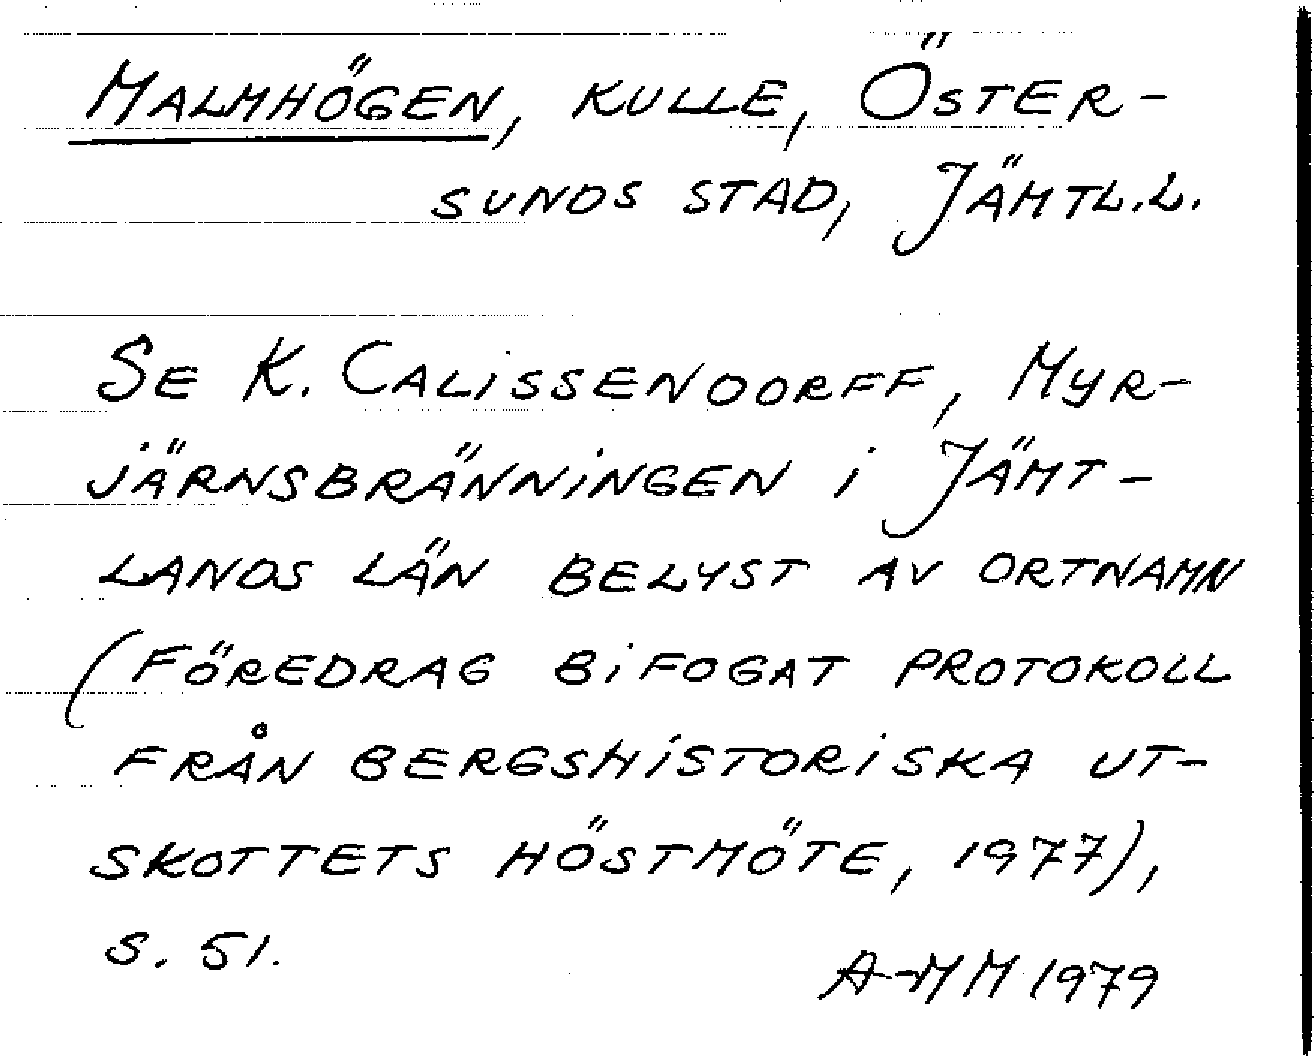 MALMHÖGEN, KULLE, ÖSTER-
SUNDS STAD, JÄMTL.L.
SE K. CALISSENDORFF, MYR-
JÄRNSBRÄNNINGEN I JÄMT-
LANDS LÄN BELYST AV ORTNAMN
(FÖREDRAG BIFOGAT PROTOKOLL
FRÅN BERGSHISTORISKA UT-
SKOTTETS HÖSTMÖTE, 1977),
S. 51.
A-MM 1979